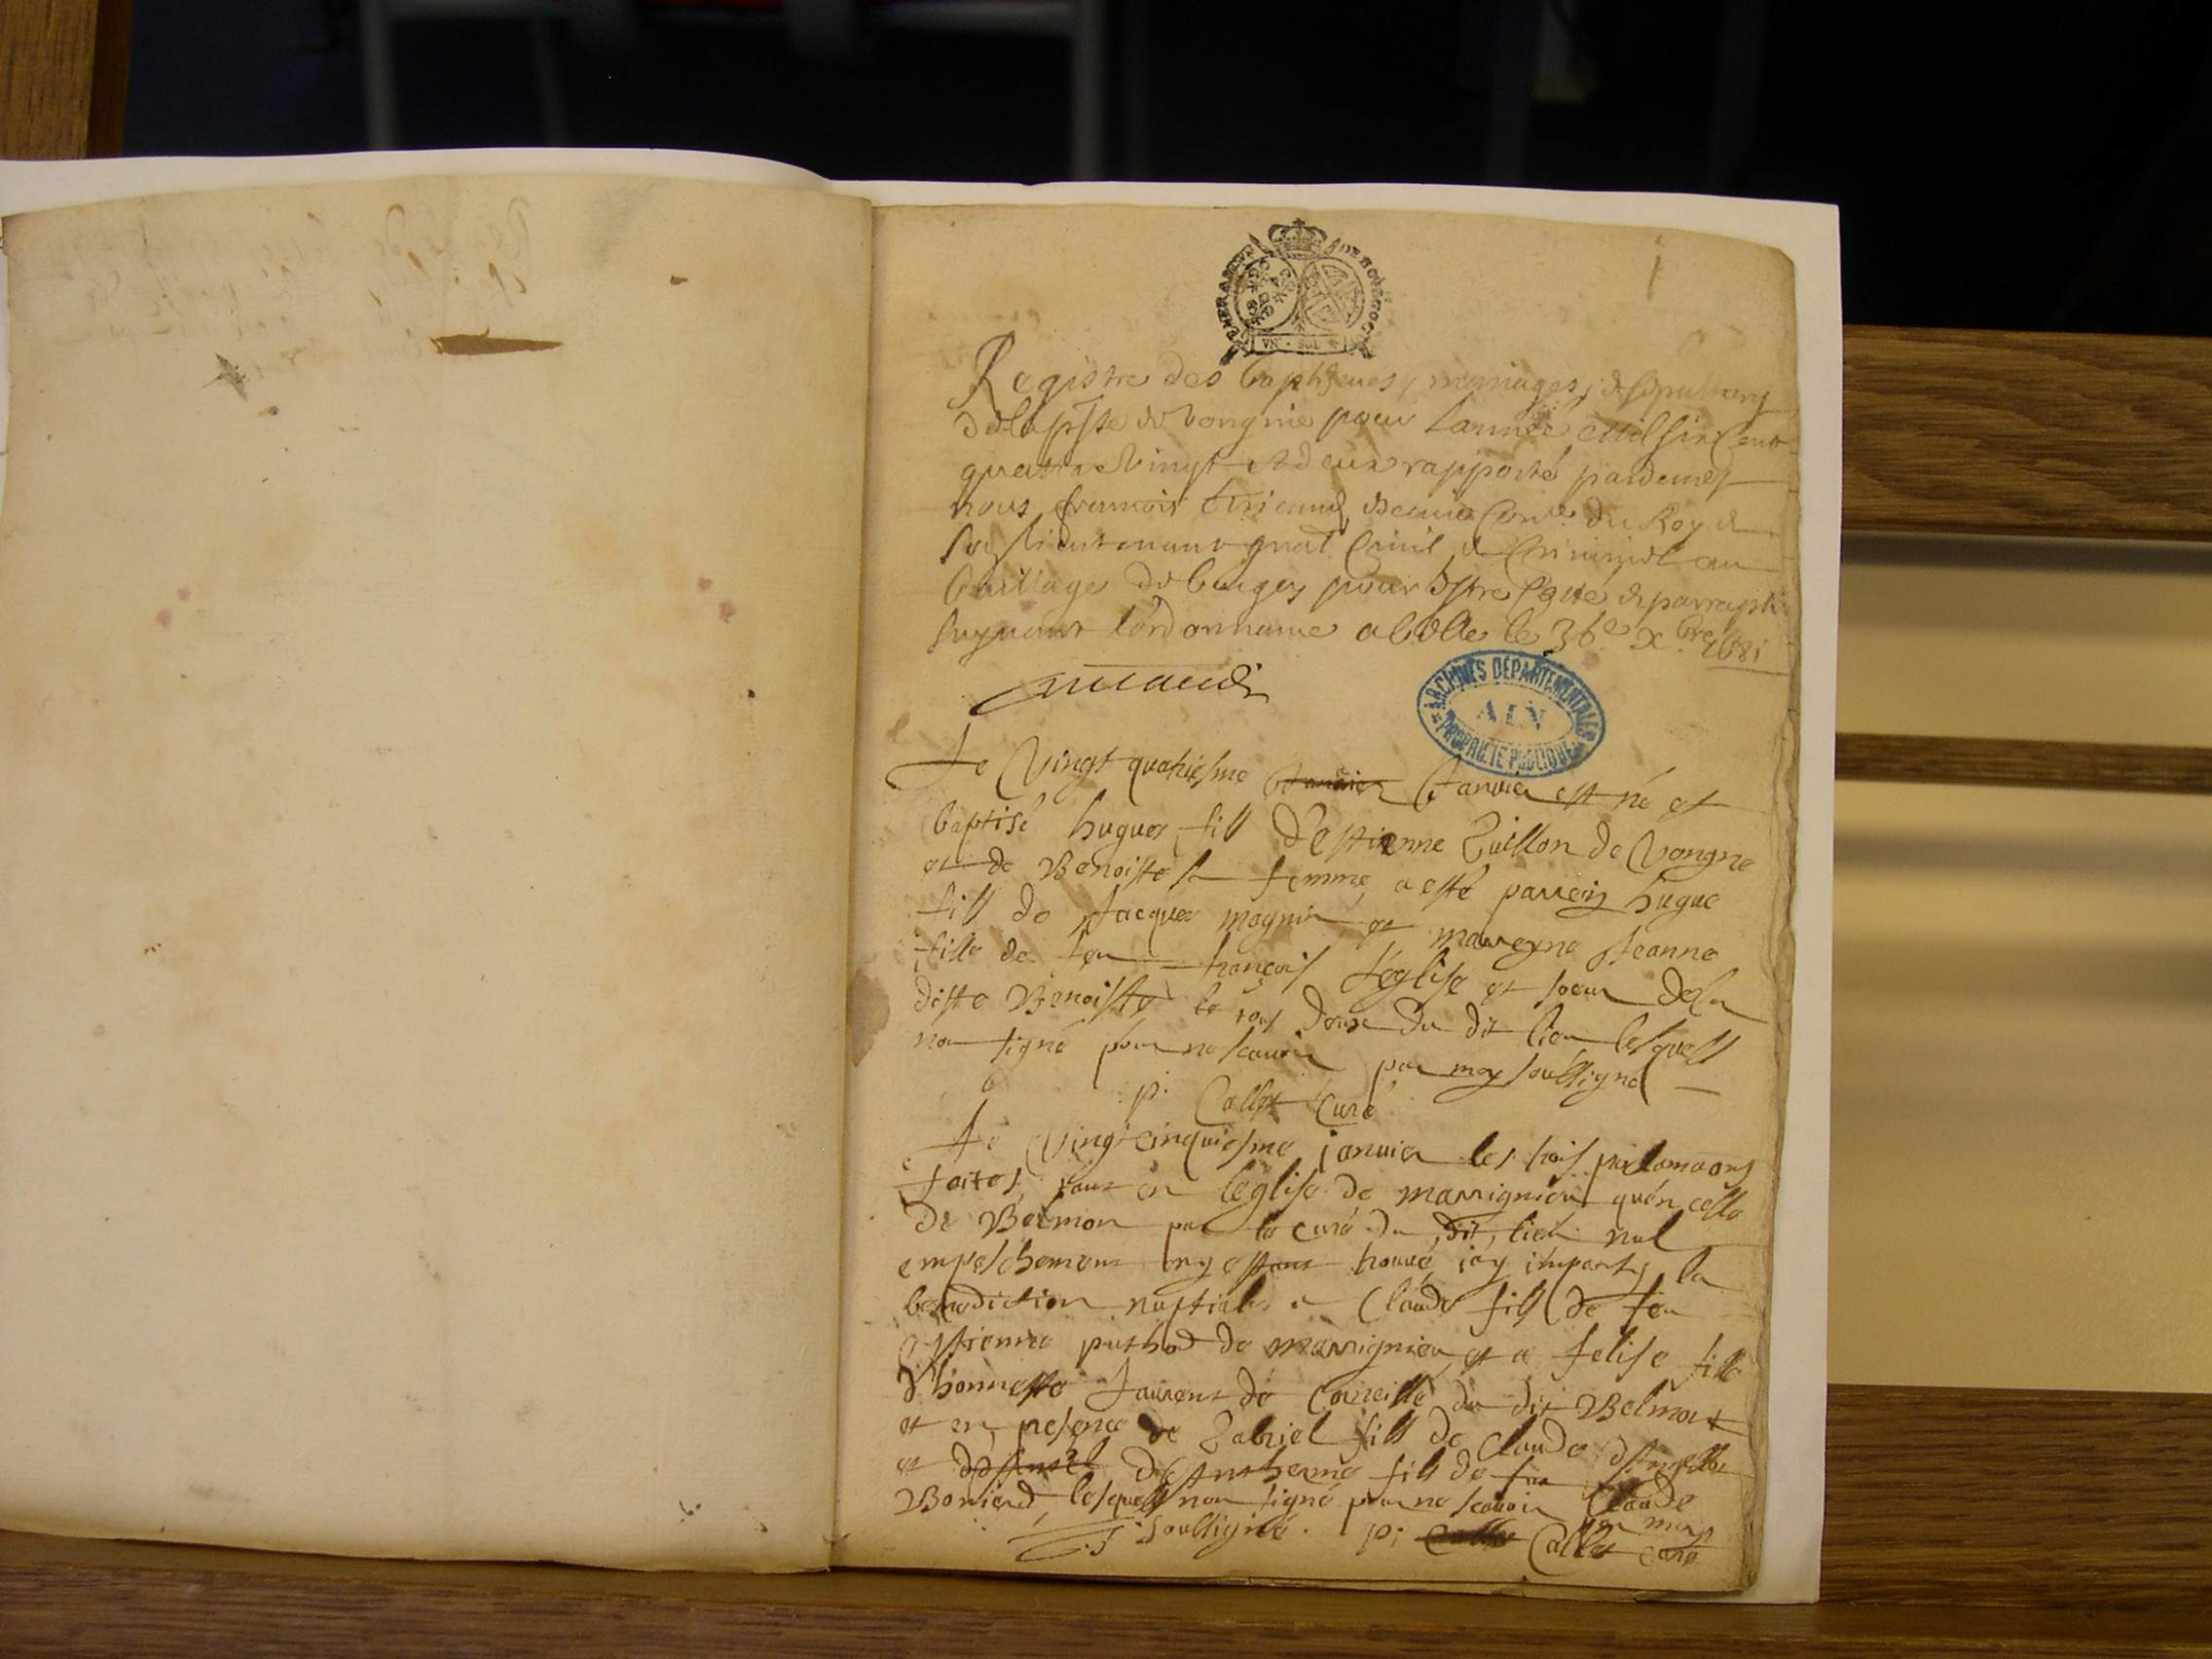 1
GENERALITE DE BOURGOGNE
VN · SOL
Registre des baptesmes, mariages, & sepultures
de la psse de Vongnie pour lannée Mil six Cent
quattre vingt et deux rapporté pardevant
nous francois Con.er du Roy &
son lieutenant gnal Civil & Criminel au
bailliage de bugey pour Estre Cotté & parraphé
suyvant lordonnance a belle le 36e xbre 1681
ARCHIVES DÉPARTEMENTALES
AIN
PROPRIÉTÉ PUBLIQUE
Le Vingt quatriesme Janvier Janvier est né et
baptisé hugues fils d'estienne Guillon de Vongne
et de Benoiste sa femme, a esté parrein hugue
fils de Jacques magnin et marreyne Jeanne
fille de feu françois Léglise et soeur de la
diste Benoiste le tous deux du dit lieu lesquels
non signé pour ne scavoir par moy soussigné
p. Callet Curé
Le Vingt cinquiesme janvier les trois proclamaons
faites tant en leglise de marrignieu quen celle
de Belmon par le curé du dit lieu nul
empeschement ny estant trouvé jay imparty la
benediction nuptiale a Claude fils de feu
estienne puthod de marrignieu et a felise fille
d'honneste Laurent de Corneille du dit Belmont
et en presence de Gabriel fils de Claude
et d'Anthelme fils de feu Claude
Boniard, lesquels non signé pour ne scavoir par moy
soussigné. p. Callet Curé